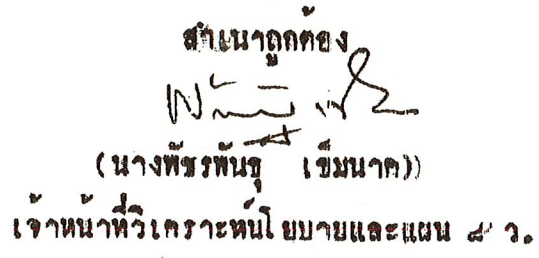 สำเนาถูกต้อง
(นางพัชรพันธุ์ เข็มนาค))
เจ้าหน้าที่วิเคราะห์นโยบายและแผน ๘ ว.